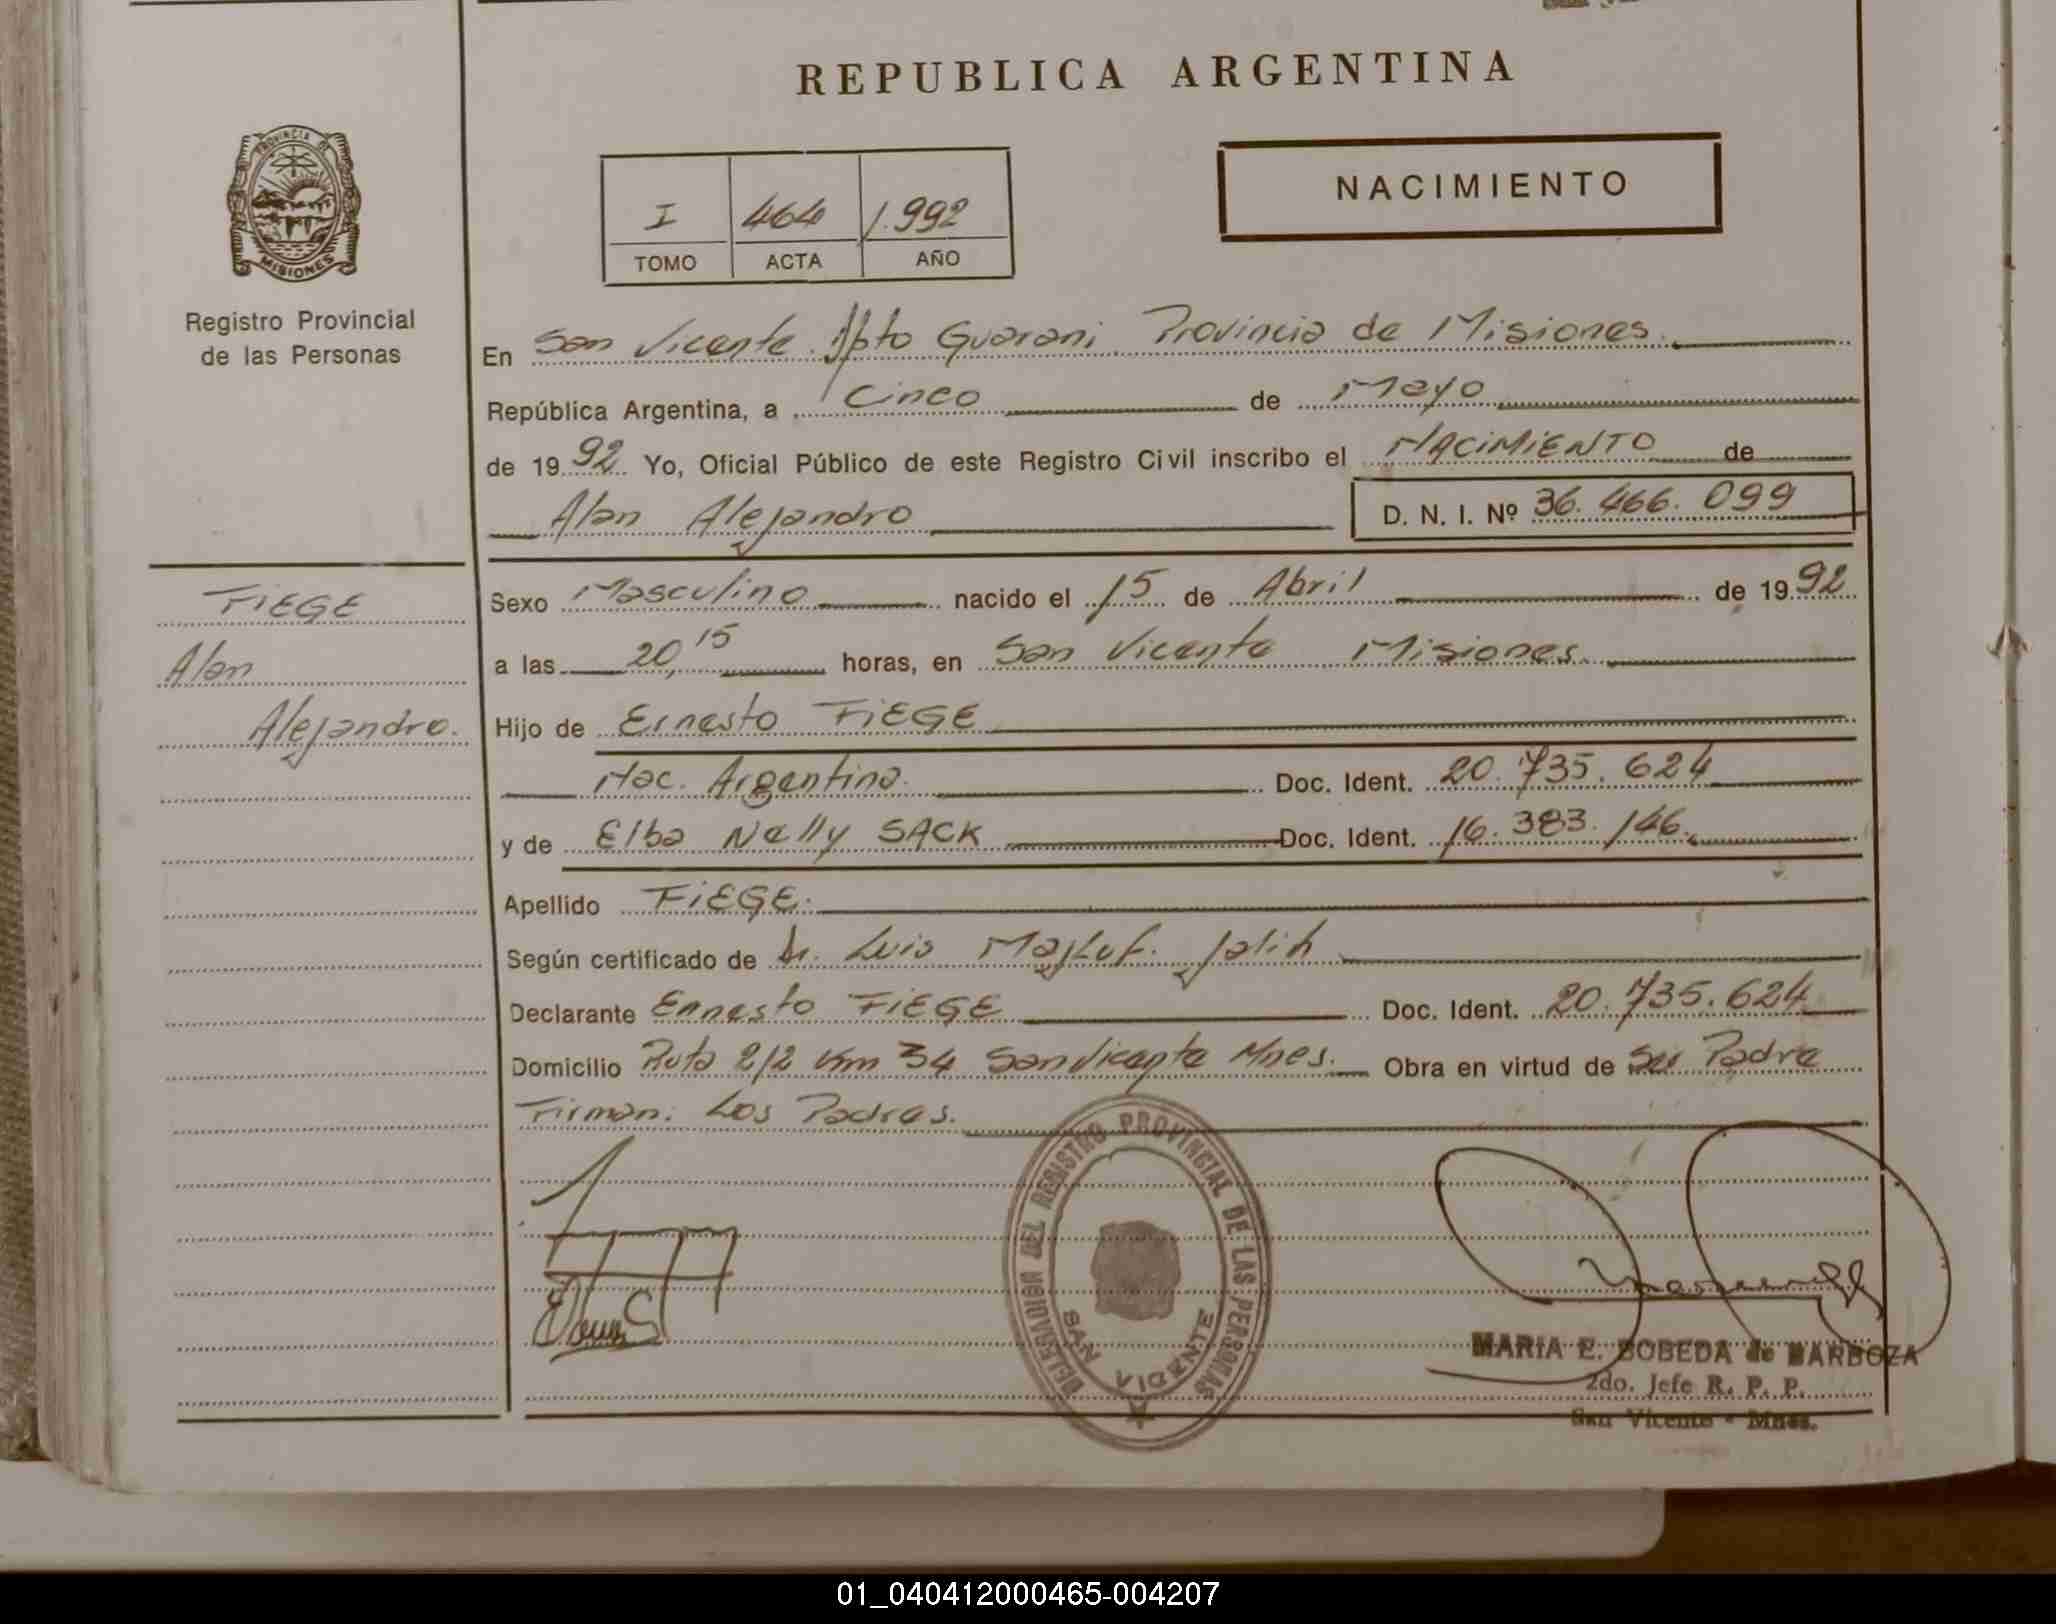 REPUBLICA ARGENTINA
PROVINCIA DE
MISIONES
Registro Provincial
de las Personas
I 464 1.992
TOMO ACTA AÑO
NACIMIENTO
En San Vicente Dpto Guarani Provincia de Misiones.
República Argentina, a Cinco de Mayo
de 19 92 Yo, Oficial Público de este Registro Civil inscribo el NACIMIENTO de
Alan Alejandro D. N. I. Nº 36.466.099
FIEGE
Alan
Alejandro.
Sexo Masculino nacido el 15 de Abril de 19 92
a las 20,15 horas, en San Vicente Misiones.
Hijo de Ernesto FIEGE
Nac. Argentina. Doc. Ident. 20.735.624
y de Elba Nelly SACK Doc. Ident. 16.383.146.
Apellido FIEGE.
Según certificado de Dr. Luis
Declarante Ernesto FIEGE Doc. Ident. 20.735.624
Domicilio Ruta 212 Km 34 San Vicente Mnes. Obra en virtud de Ser Padre
Firman: Los Padres.
DELEGRACION DEL REGISTRO PROVINCIAL DE LAS PERSONAS
SAN VICENTE
MARIA E. BOBEDA de BARBOZA
2do. Jefe R. P. P.
San Vicente - Mnes.
01_040412000465-004207